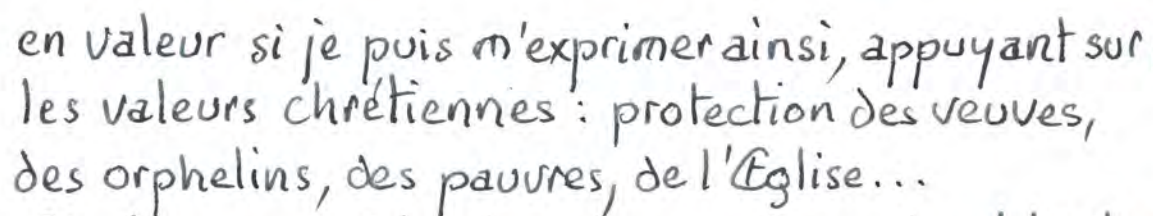 en valeur si je puis m'exprimer ainsi, appuyant sur
les valeurs chrétiennes : protection des veuves,
des orphelins, des pauvres, de l'Eglise...